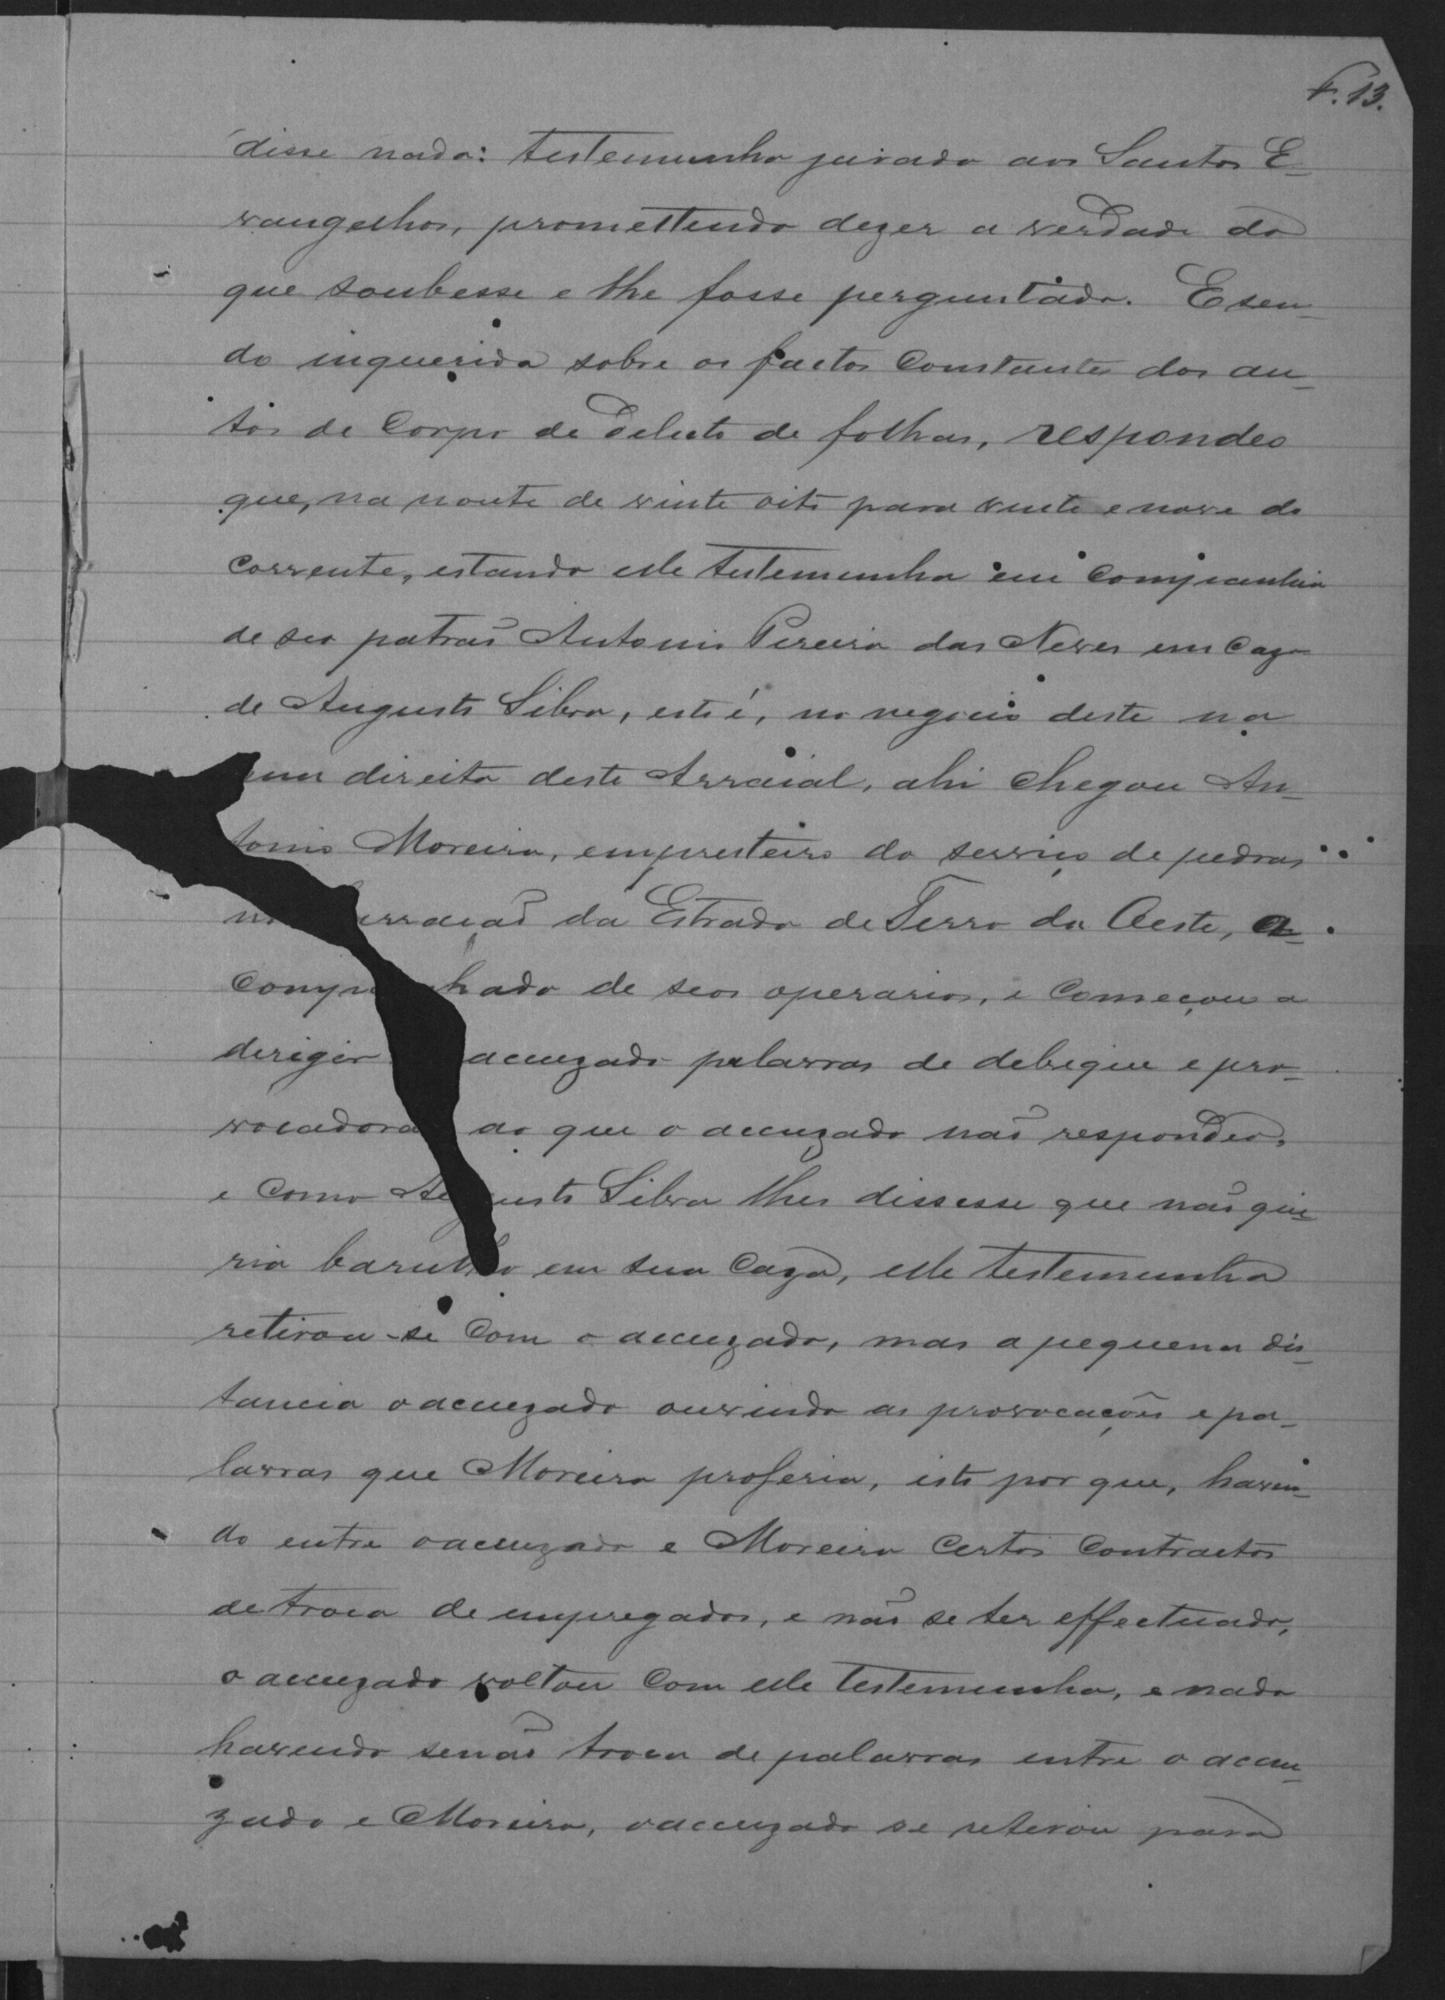 F. 13.
disse nada: testemunha jurada aos Santos E-
vangelhos, promettendo dizer a verdade do
que soubesse e lhe fosse perguntado. E sen-
do inquerida sobre os factos constantes dos au-
tos de corpo de delicto de folhas, respondeo
que, na noute de vinte oito para vinte e nove do
corrente, estando elle testemunha em companhia
de seo patrão Antonio Pereira das Neves em caza
de Augusto Silva, isto é, no negocio deste na
direita deste Arraial, ahi chegou An-
tonio Moreira, empreiteiro do serviço de pedras
da Estrada de Ferro do Oeste, a-
companhado de seos operarios, e começou a
dirigir acuzado palavras de debique e pro-
vocadoras ao que o acuzado não respondeo,
e como Augusto Silva lhes dissesse que não que-
ria barulho em sua caza, elle testemunha
retirou-se com o acuzado, mas a pequena dis-
tancia o acuzado ouvindo as provocações e pa-
lavras que Moreira proferia, isto por que, haven-
do entre o acuzado e Moreira certos contractos
de troca de empregados, e não se ter effectuado,
o acuzado voltou com elle testemunha, e nada
havendo senão troca de palavras entre o acu-
zado e Moreira, o acuzado se retirou para